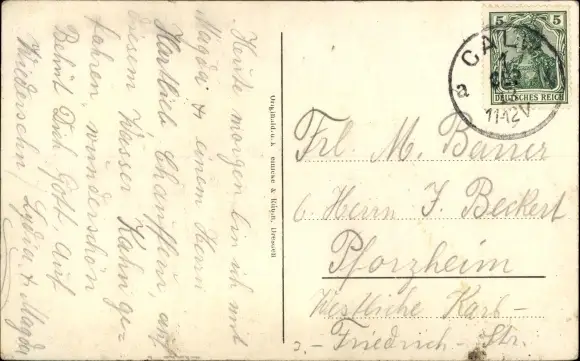 Heute morgen bin ich mit
Magda & einem Herrn
Karlheile Chauffeur, auf
diesem Wasser Kahn ge-
fahren, wunderschön
Behüt Dich Gott auf
Wiedersehn Lydia & Magda
Original d. u. k. & Rügh, Dresden
5 5
DEUTSCHES REICH
CALW
a
11-12V
Frl. M. Bauer
b. Herrn J. Beckert
Pforzheim
Westliche Karl-
Friedrich-Str.